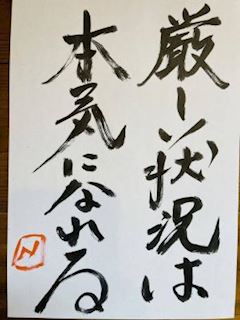 厳しい状況は
本気になれる